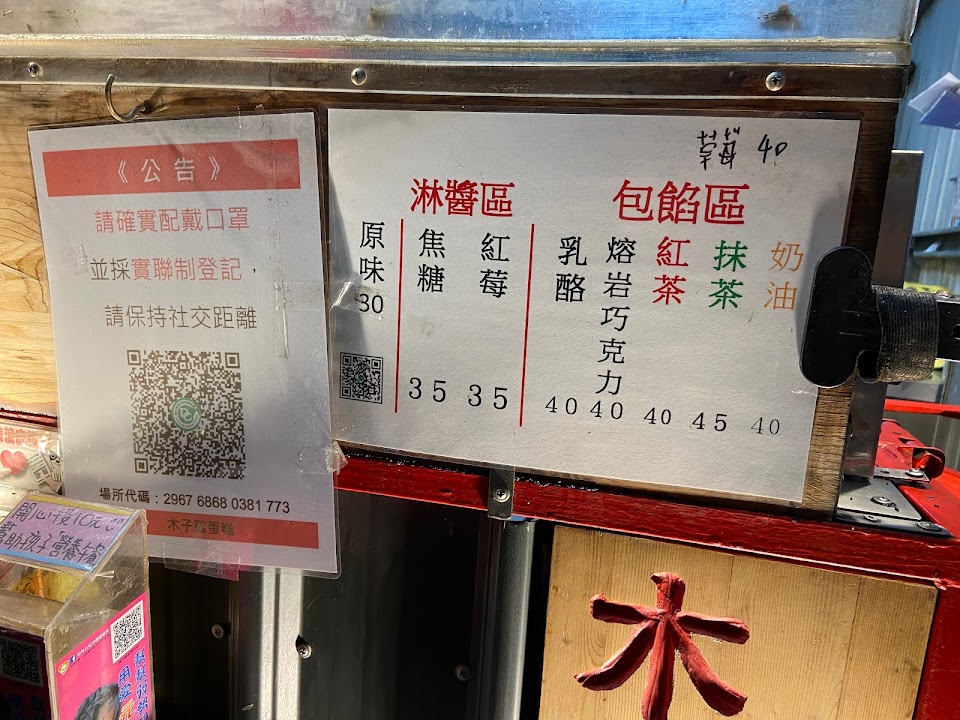 《公告》
請確實配戴口罩
並採實聯制登記，
請保持社交距離
場所代碼：2967 6868 0381 773
木子雞蛋糕
莓 40
淋醬區
包餡區
原味
30
焦糖
35
紅莓
35
乳酪
40
熔岩巧克力
40
紅茶
40
抹茶
45
奶油
40
木